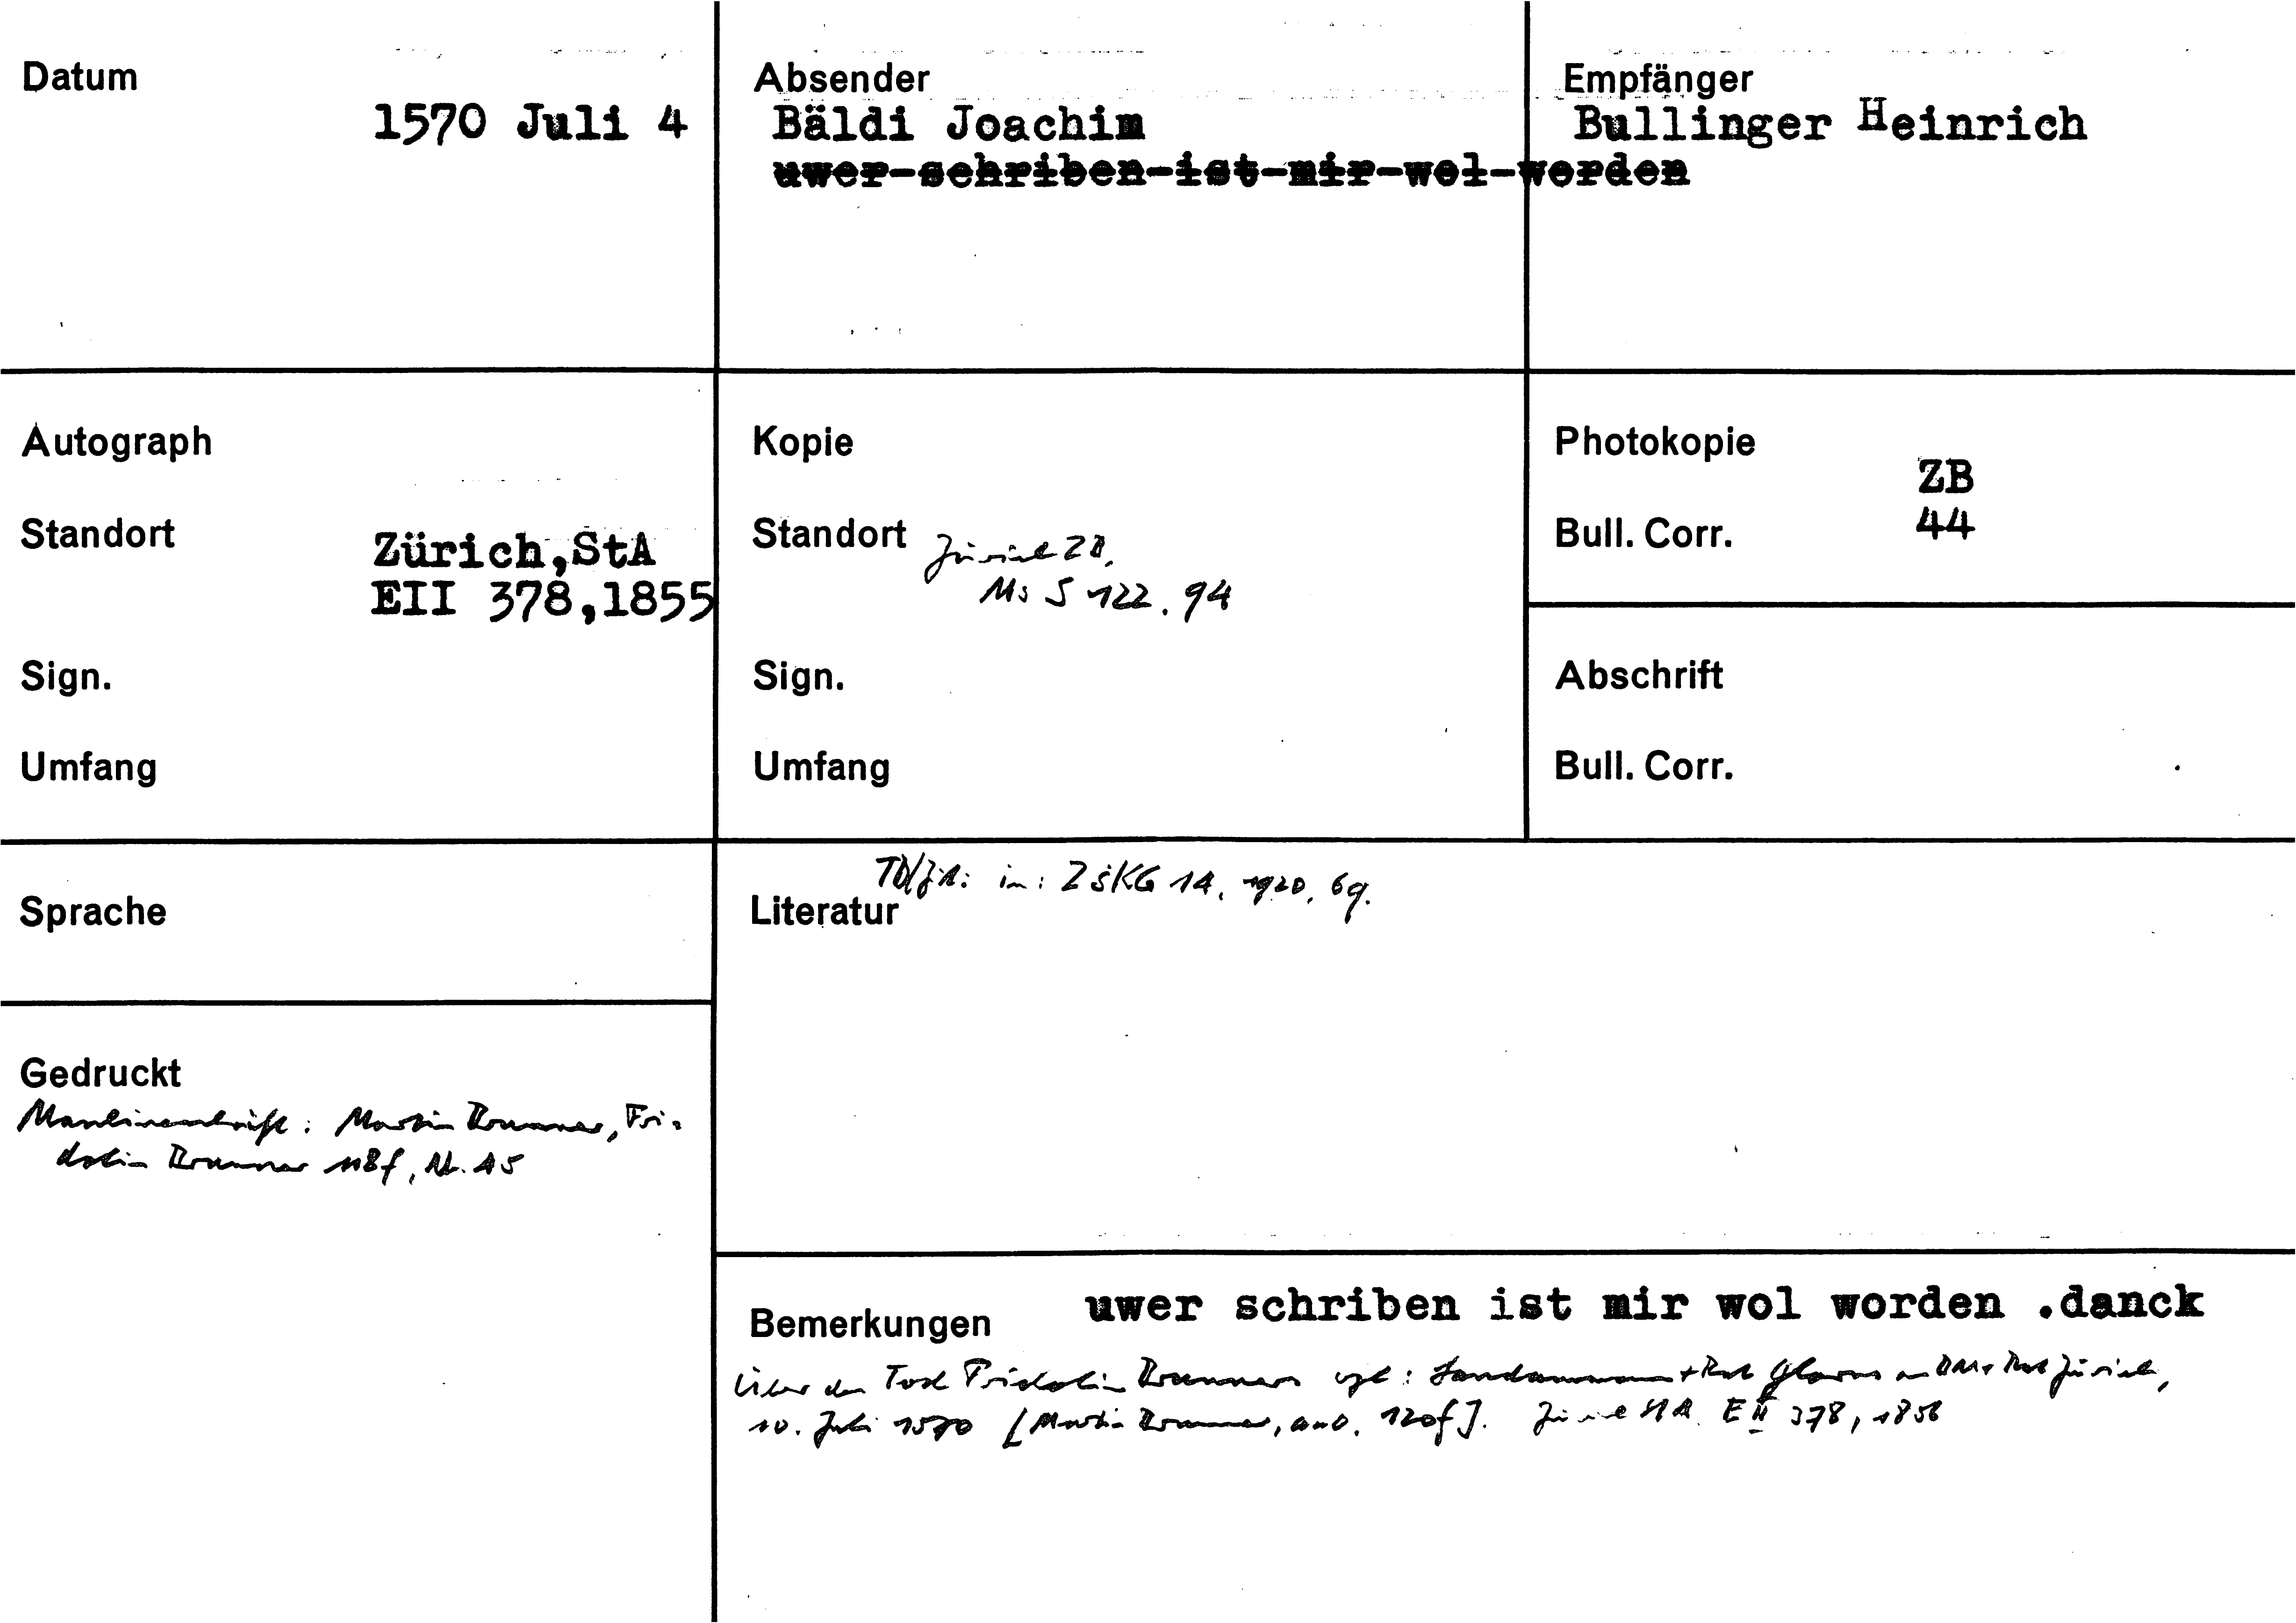 Datum
1570 Juli 4
Absender
Bäldi Joachim
uwer-schriben-ist-mir-wol-worden
Empfänger
Bullinger Heinrich
Autograph
Standort
Zürich,StA
EII 378,1855
Sign.
Umfang
Kopie
Standort Zürich ZB,
Ms S 122. 94
Sign.
Umfang
Photokopie
ZB
Bull. Corr.
44
Abschrift
Bull. Corr.
Sprache
Literatur
in: ZSKG 14, 1920, 69.
Gedruckt
Maschinenschrift: Martin Brunner, Fri-
dolin Brunner 118f, Nr. 45
Bemerkungen
uwer schriben ist mir wol worden .danck
Über den Tod Fridolin Brunners vgl: Landammann + Rat Glarus an BM + Rat Zürich,
10. Juli 1570 [Martin Brunner, aaO, 120f]. Zürich StA E II 378, 1856